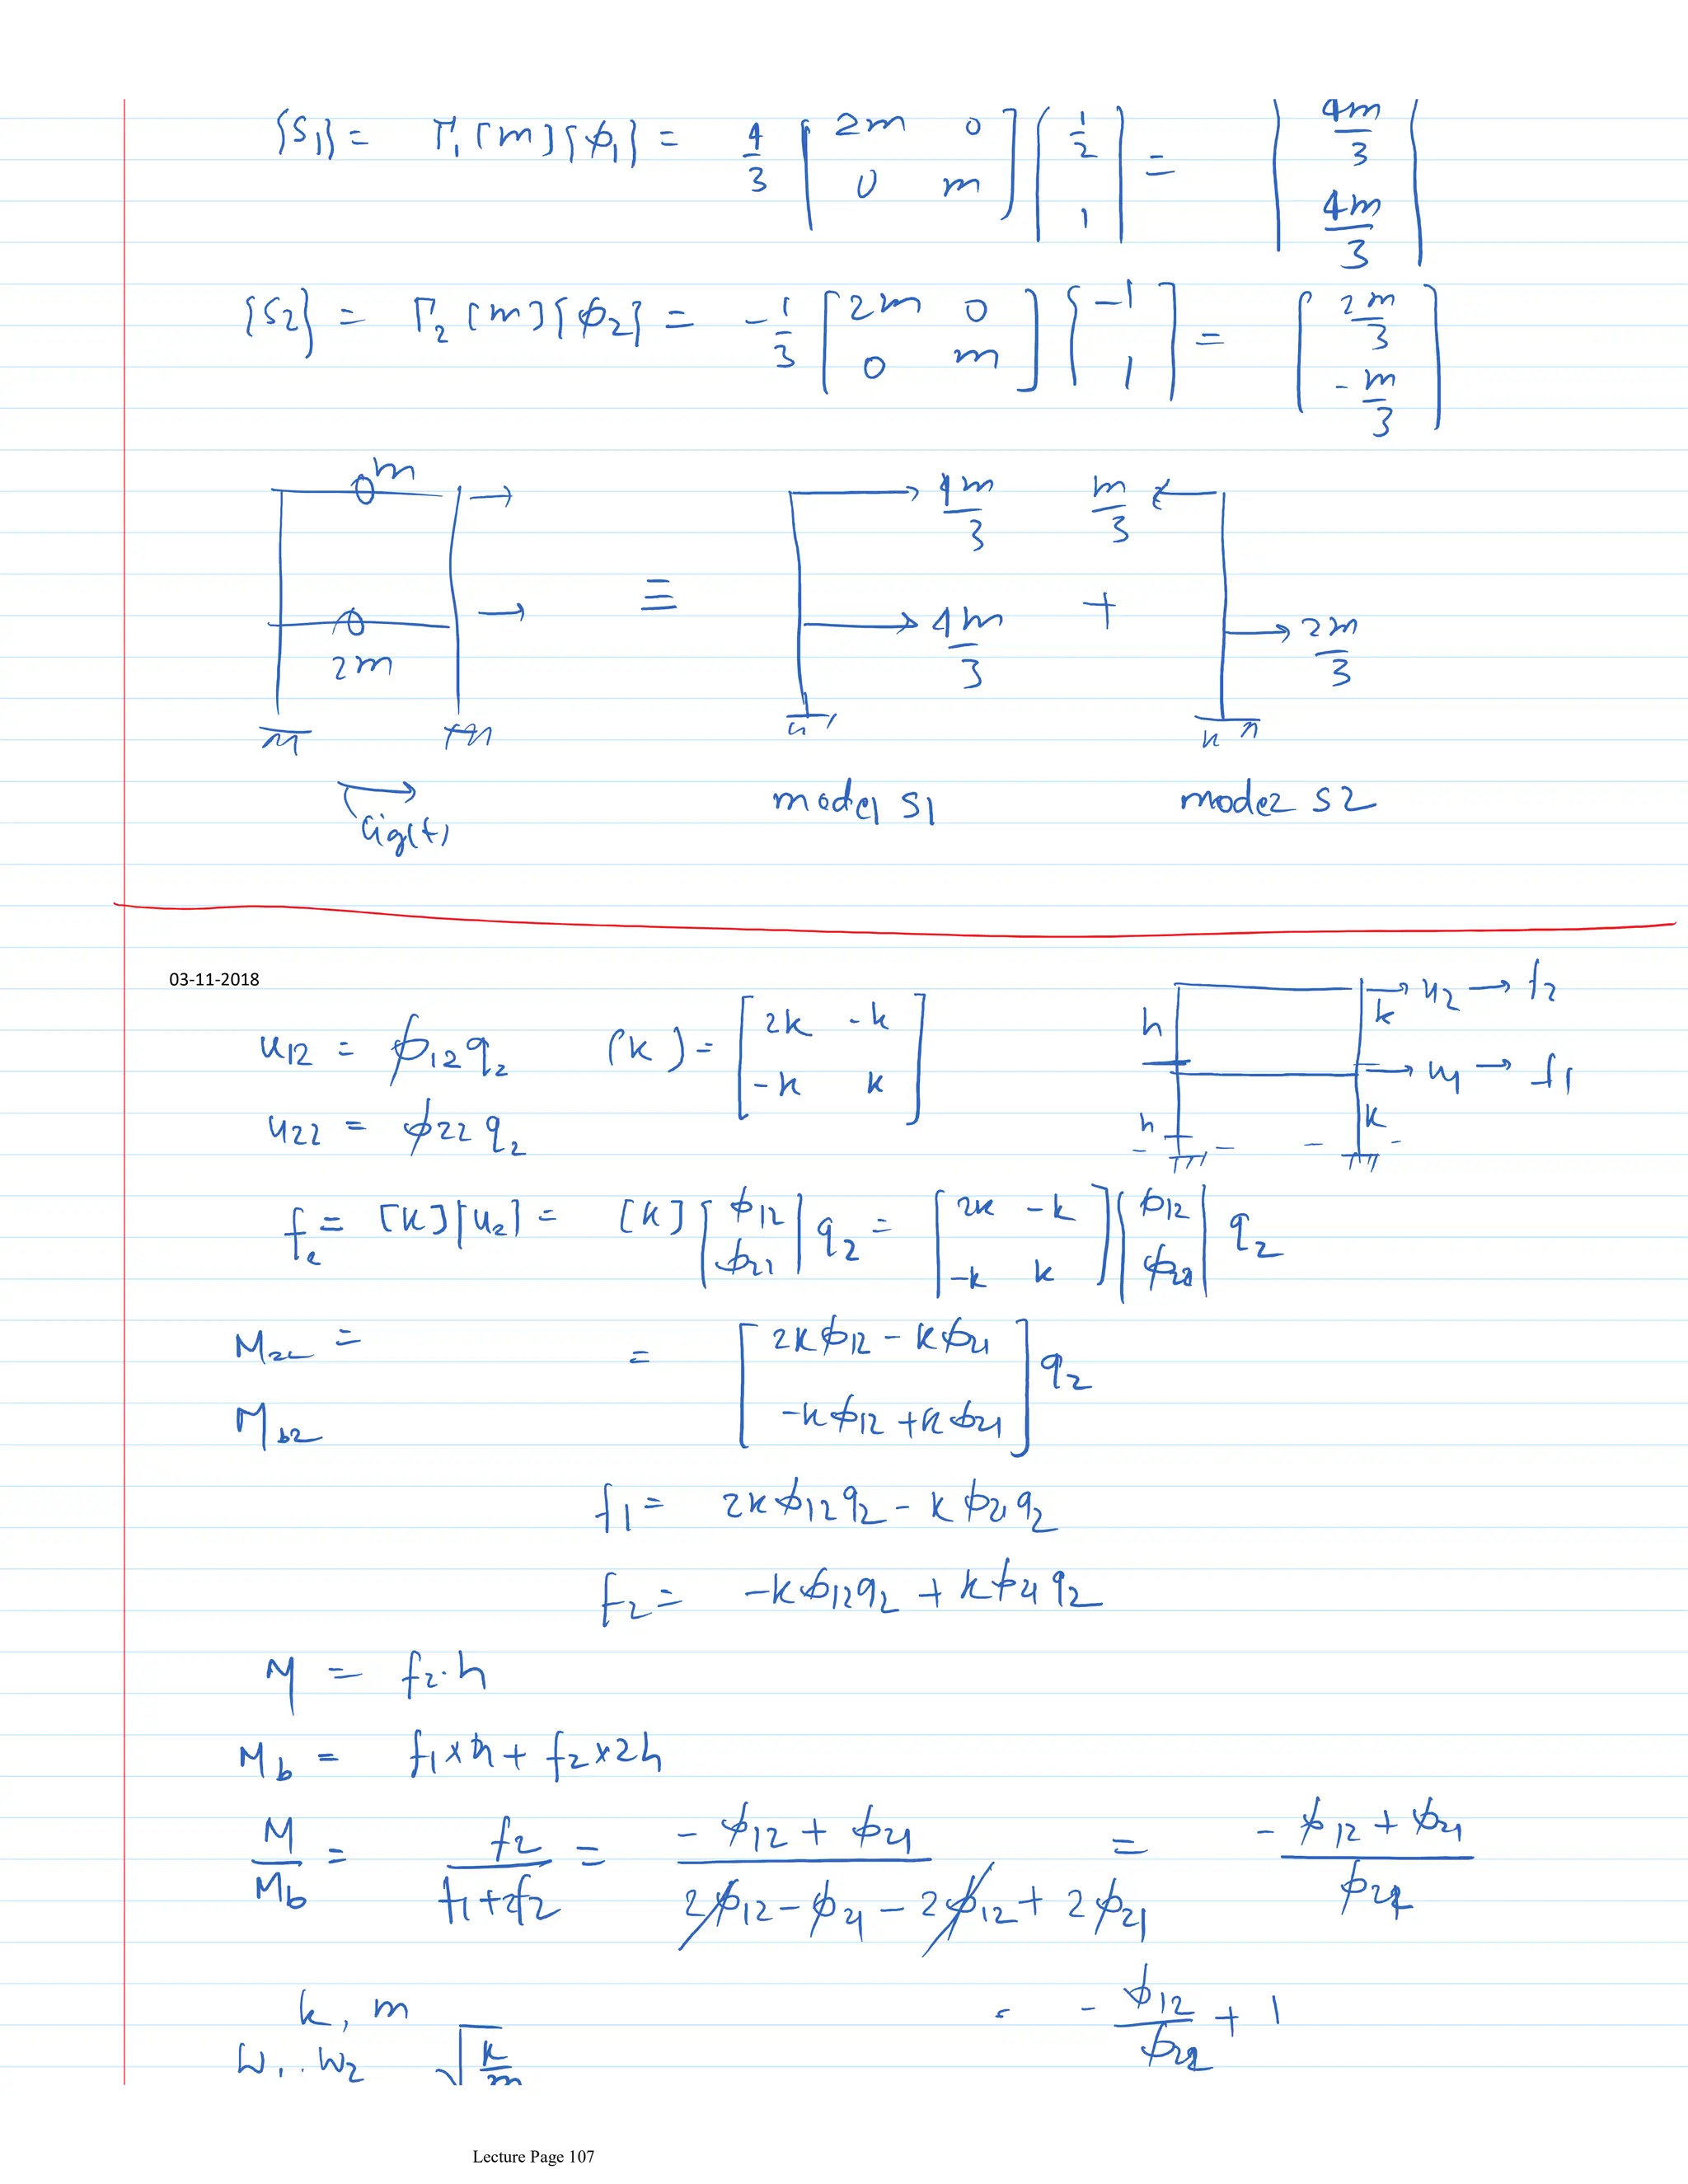 {S1} = Γ1 [m]{ϕ1} = 4/3 [2m 0; 0 m] {1/2; 1} = {4m/3; 4m/3}
{S2} = Γ2 [m]{ϕ2} = -1/3 [2m 0; 0 m] {-1; 1} = [2m/3; -m/3]
m → 4m/3 m/3
≡ +
2m → 4m/3 → 2m/3
üg(t)
mode1 S1 mode2 S2
03-11-2018
h k → u2 → f2
h k → u1 → f1
u12 = ϕ12 q2 (k) = [2k -k; -k k]
u22 = ϕ22 q2
f = [k]{u2} = [k]{ϕ12; ϕ21} q2 = [2k -k; -k k]{ϕ12; ϕ22} q2
M2 =
= [2kϕ12 - kϕ21; -kϕ12 + kϕ21] q2
Mb2
f1 = 2kϕ12q2 - kϕ21q2
f2 = -kϕ12q2 + kϕ21q2
M = f2·h
Mb = f1×h + f2×2h
M/Mb = f2/(f1+2f2) = (-ϕ12 + ϕ21)/(2ϕ12 - ϕ21 - 2ϕ12 + 2ϕ21) = (-ϕ12 + ϕ21)/ϕ22
k, m = -ϕ12/ϕ22 + 1
ω1.. ω2 √(k/m)
Lecture Page 107